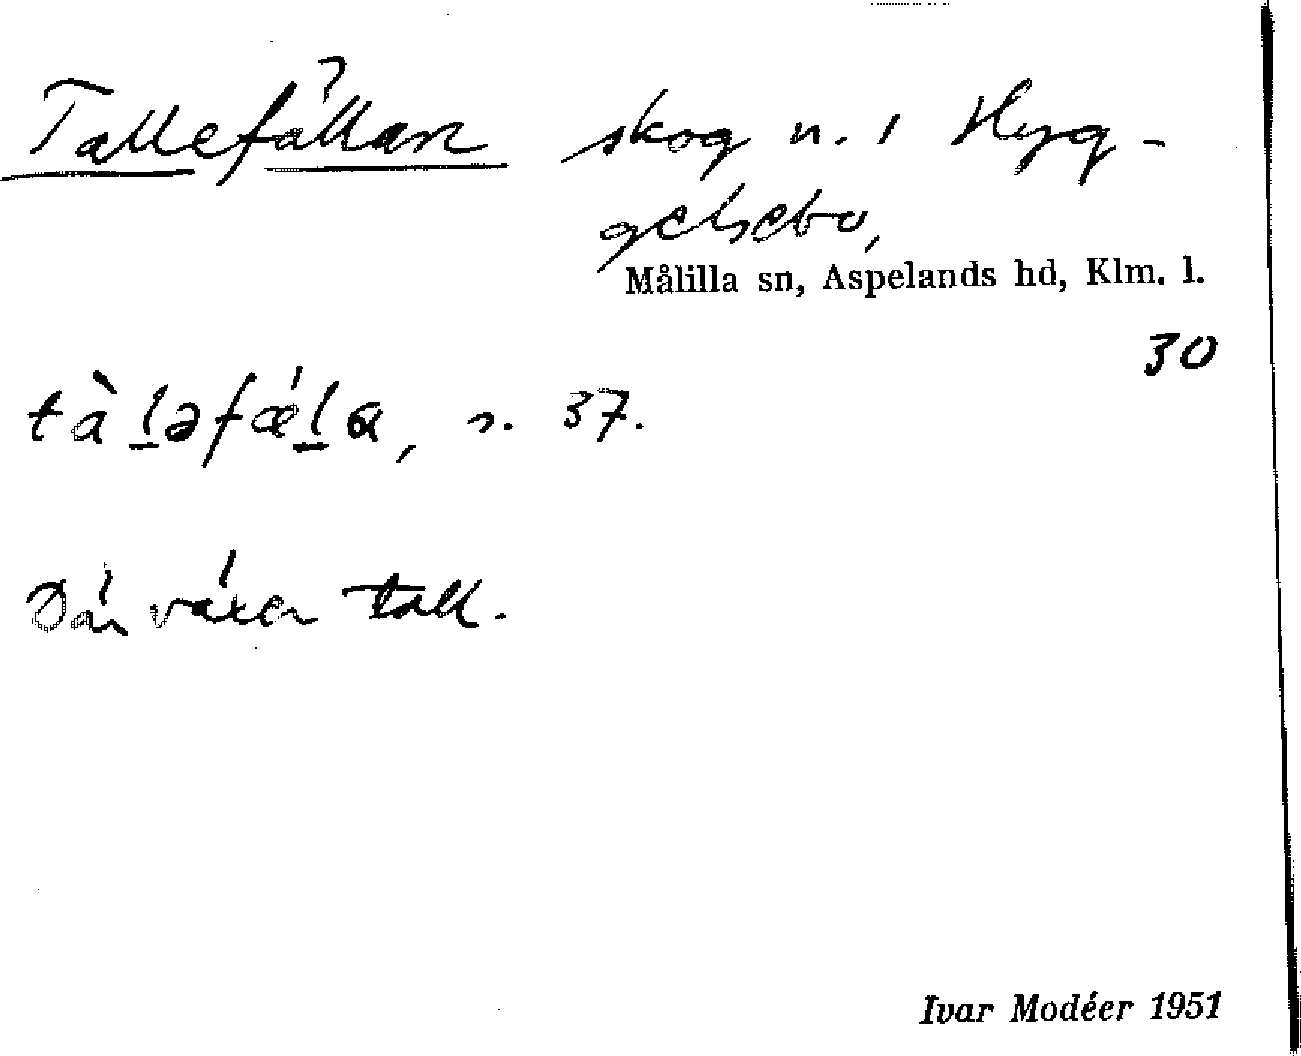 Tallefällan skog n. i Hyg-
gelsebo,
Målilla sn, Aspelands hd, Klm. l.
30
tàl̲əfǽl̲a, s. 37.
Där växer tall.
Ivar Modéer 1951